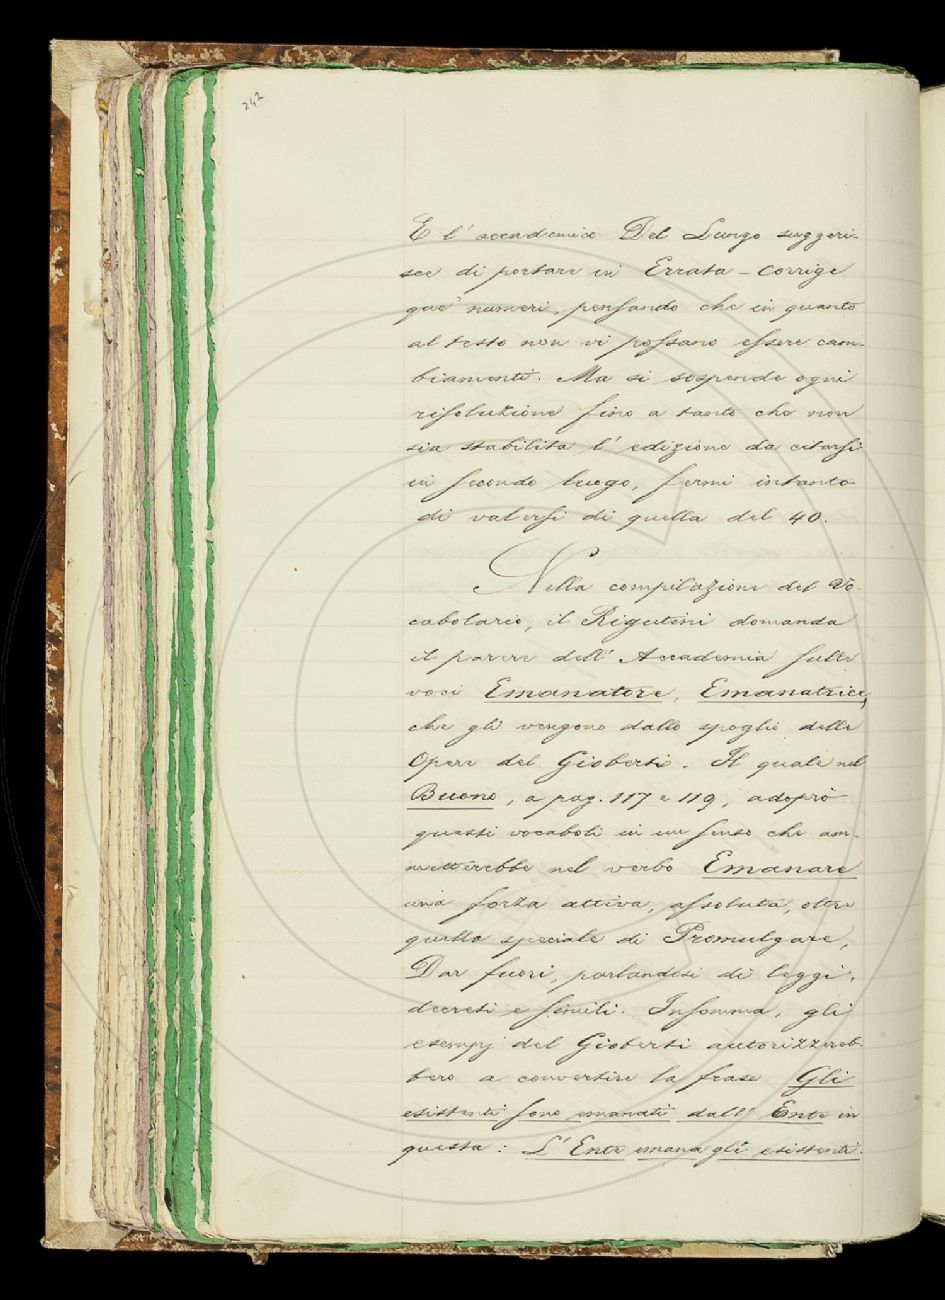 242
E l' accademico Del Lungo suggeri-
sce di portare in Errata-Corrige
que' numeri, pensando che in quanto
al testo non vi possano essere cam-
biamenti. Ma si sospende ogni
risoluzione fino a tanto che non
sia stabilita l' edizione da citarsi
in secondo luogo, fermi intanto
di valersi di quella del 40.
Nella compilazione del Vo-
cabolario, il Rigutini domanda
il parere dell' Accademia sulle
voci Emanatore, Emanatrice,
che gli vengono dallo spoglio delle
Opere del Gioberti. Il quale nel
Buono, a pag. 117 e 119, adoprò
questi vocaboli in un senso che am-
metterebbe nel verbo Emanare
una forza attiva, assoluta, oltre
quella speciale di Promulgare,
Dar fuori, parlandosi di leggi,
decreti e simili. Insomma, gli
esempj del Gioberti autorizzereb-
bero a convertire la frase Gli
esistenti sono emanati dall' Ente in
questa: L' Ente emana gli esistenti.